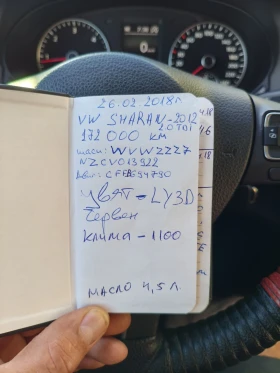 26.02.2018г
VW SHARAN-2012
2.0 TDI
172 000 км
шаси: WVWZZZ7
NZCV013922
двиг: CFFB594790
Цвят = LY3D
Червен
Клима - 1100
МАСЛО 4,5 л.